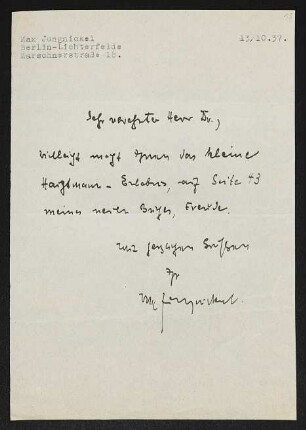 Max Jungnickel
Berlin-Lichterfelde
Marschnerstraße 15.
13.10.37.
Sehr verehrter Herr Dr.,
vielleicht macht Ihnen das kleine
Hauptmann-Erlebnis, auf Seite 43
meines neuen Buches, Freude.
Mit herzlichen Grüßen
Ihr
Max Jungnickel.